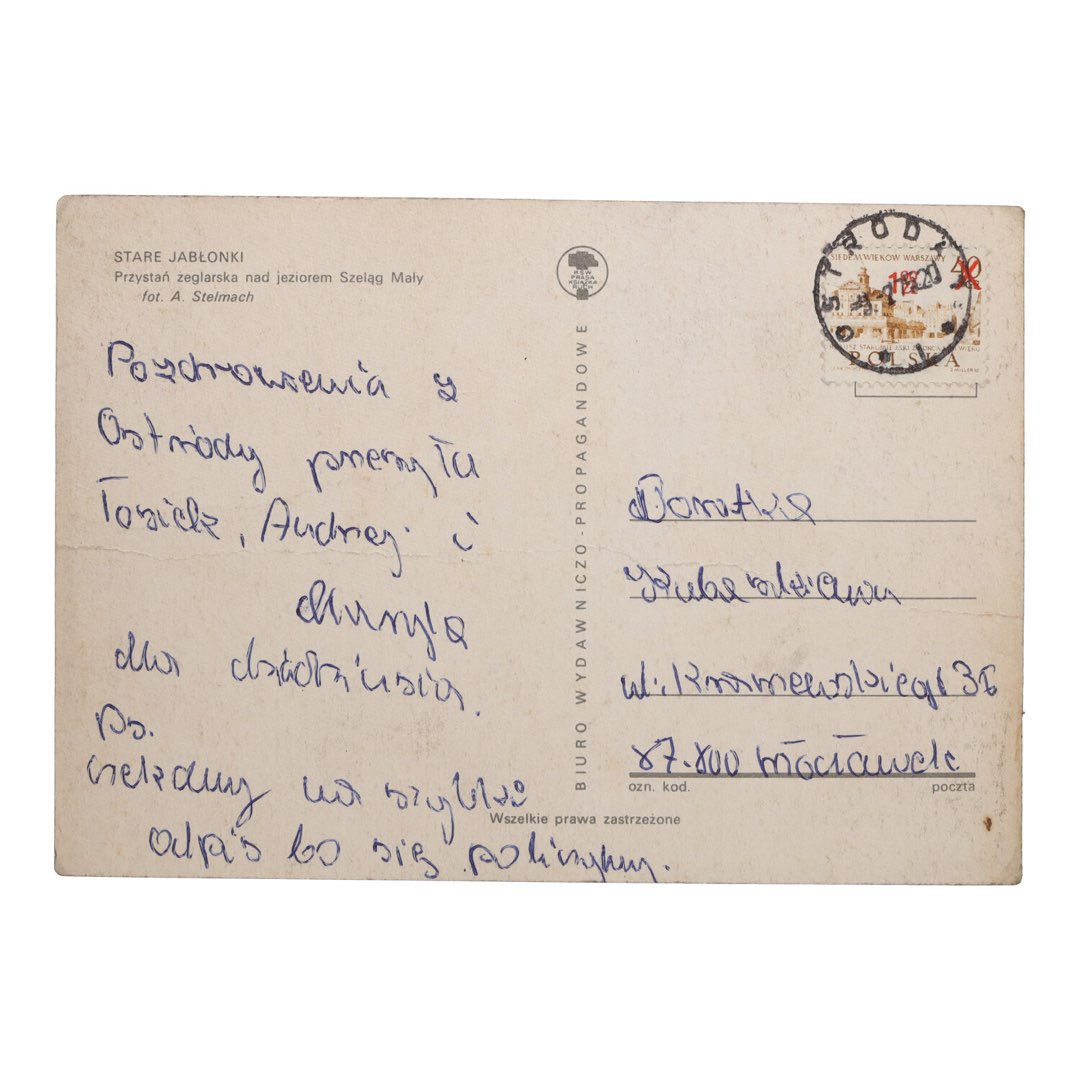 STARE JABŁONKI
Przystań żeglarska nad jeziorem Szeląg Mały
fot. A. Stelmach
Pozdrowienia z
Ostródy przesyła
Tosiek, Andrzej i
dla dziadziusia.
ps.
czekamy na szybki
odpis bo się policzymy.
RSW
PRASA
KSIĄŻKA
RUCH
BIURO WYDAWNICZO-PROPAGANDOWE
Wszelkie prawa zastrzeżone
SIEDEM WIEKÓW WARSZAWY
40
POLSKA
OSTRÓDA 1
Dorotka
ul. Kraszewskiego 36
87-800 Włocławek
ozn. kod.
poczta